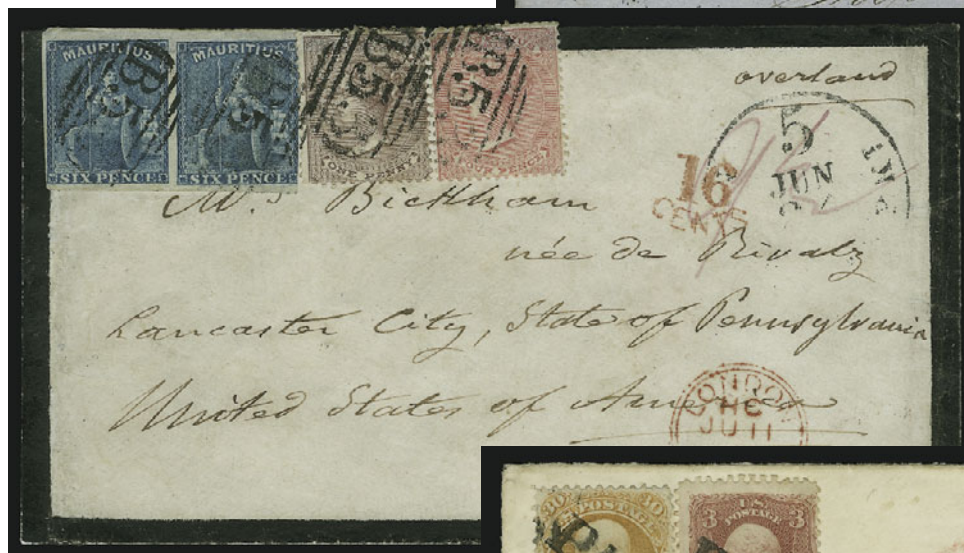 MAURITIUS MAURITIUS
B53
SIX PENCE SIX PENCE ONE PENNY FOUR PENCE
overland
5
JUN
16
CENTS
Mrs Bickham
née de Rivalz
Lancaster City, State of Pennsylvania
United States of America
LONDON
HC
JU 11
30 30 3 U.S. 3
POSTAGE POSTAGE